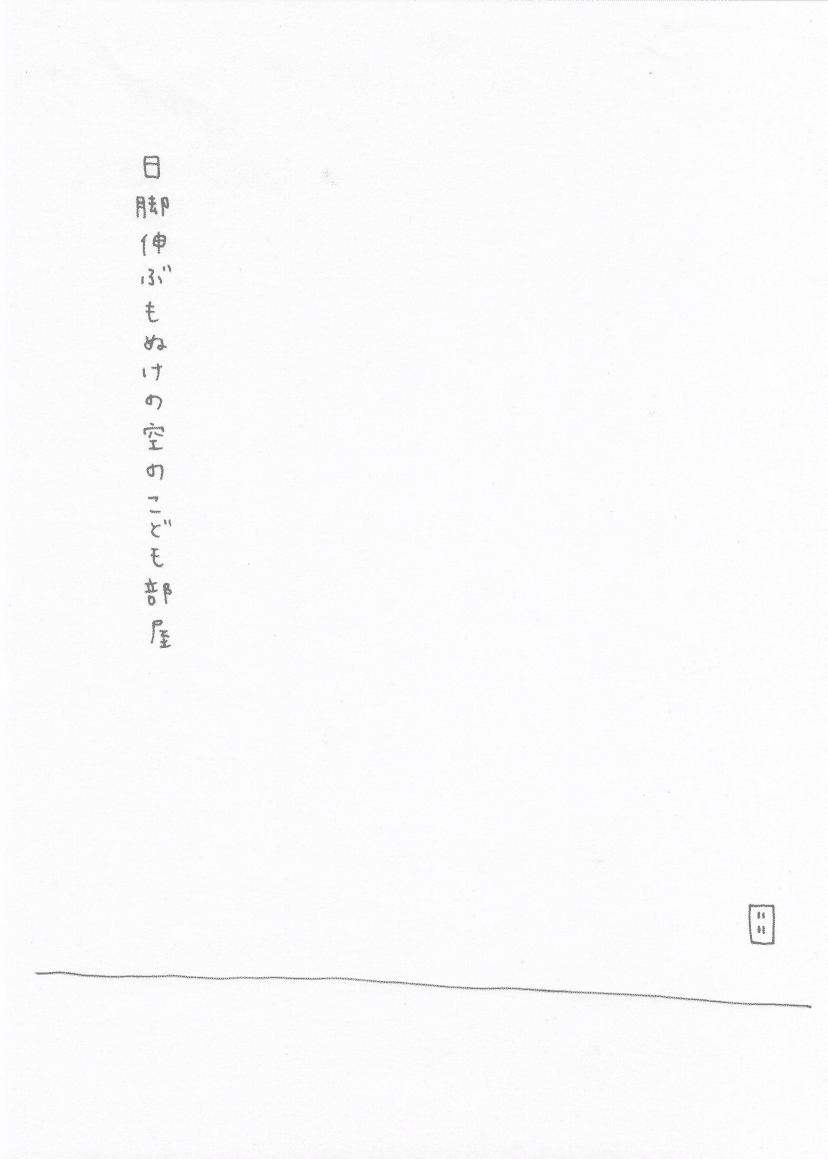 日脚伸ぶもぬけの空のこども部屋